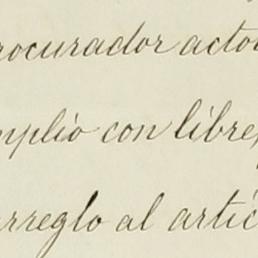 rocurador acto
mplió con libre,
rreglo al artíc